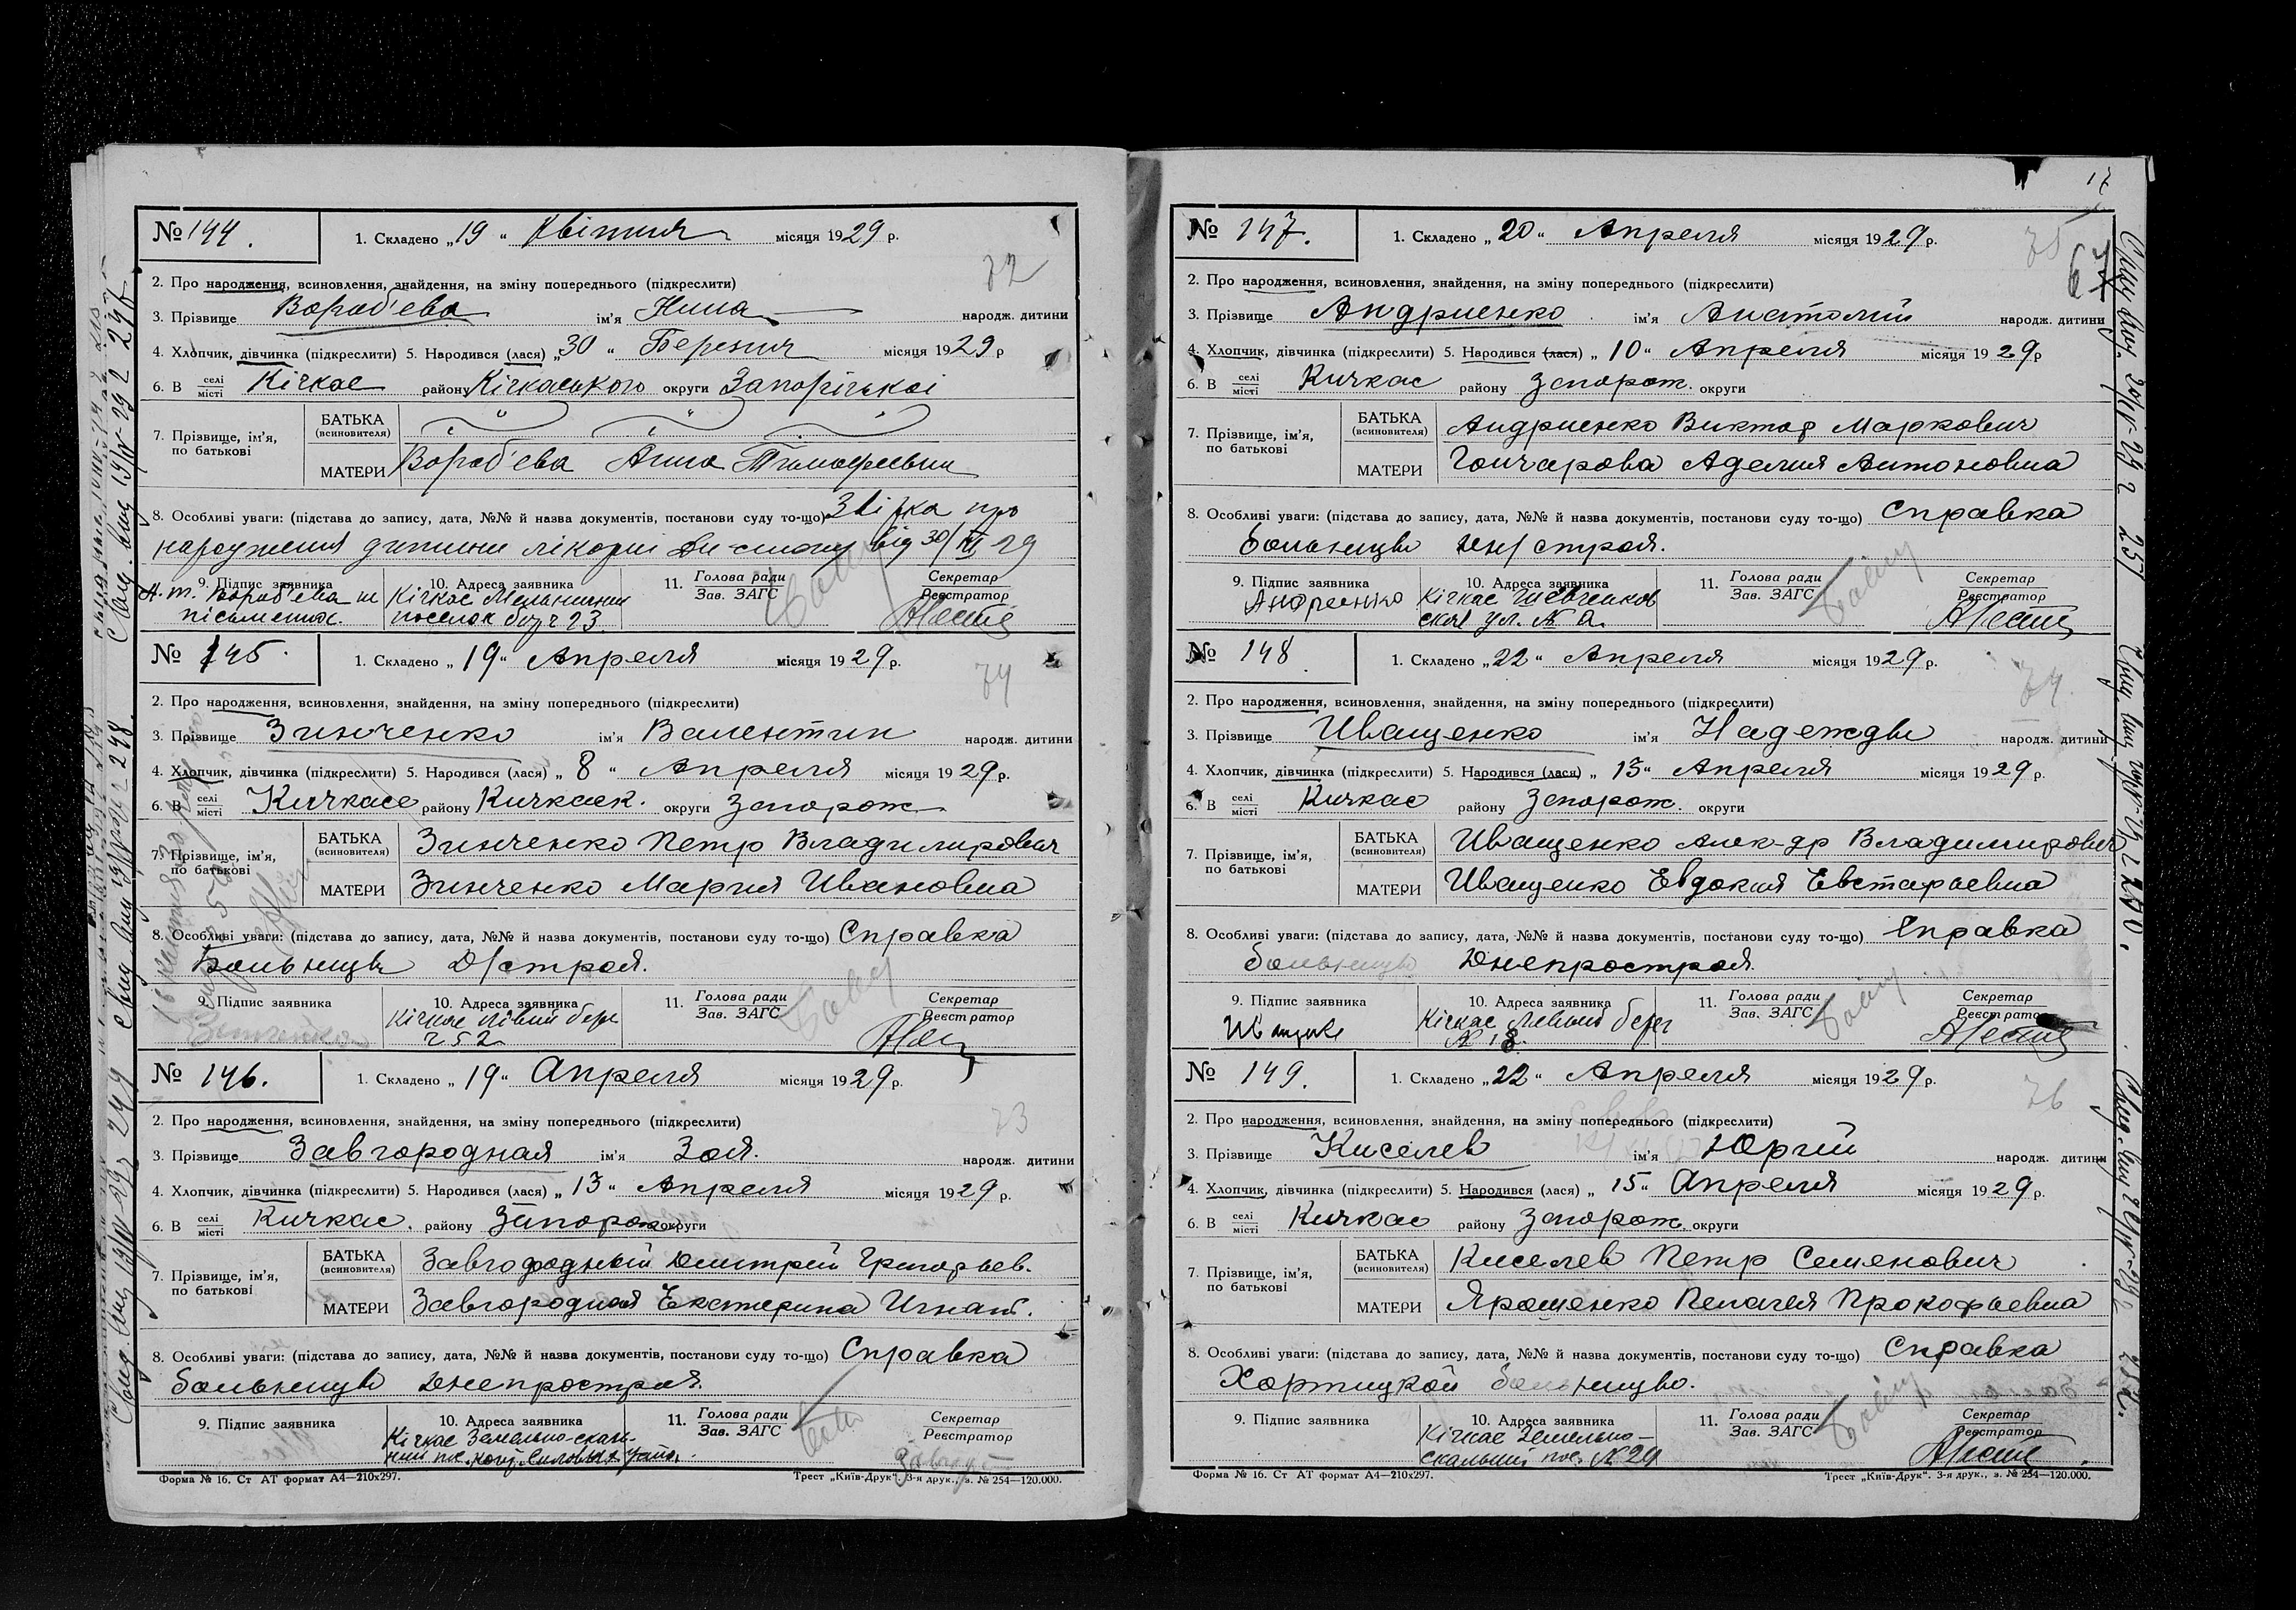 № 144. 1. Складено „19“ Квітня місяця 1929 р.
72
2. Про народження, всиновлення, знайдення, на зміну попереднього (підкреслити)
3. Прізвище Вороб'ева ім'я Нина народж. дитини
4. Хлопчик, дівчинка (підкреслити) 5. Народився (лася) „30“ Березня місяця 1929 р
6. В селі місті Кічкас району Кічкаського округи Запорізької
7. Прізвище, ім'я, по батькові
БАТЬКА (всиновителя)
МАТЕРИ Вороб'ева Анна Тимофеевна
8. Особливі уваги: (підстава до запису, дата, №№ й назва документів, постанови суду то-що) Звістка про
народження дитини лікарні від 30/III 29
9. Підпис заявника 10. Адреса заявника 11. Голова ради Зав. ЗАГС Секретар Реєстратор
А. Т. Вороб'ева Кічкас
письменна. поселок 23
№ 145. 1. Складено „19“ Апреля місяця 1929 р.
74
2. Про народження, всиновлення, знайдення, на зміну попереднього (підкреслити)
3. Прізвище Зинченко ім'я Валентин народж. дитини
4. Хлопчик, дівчинка (підкреслити) 5. Народився (лася) „8“ Апреля місяця 1929 р.
6. В селі місті Кичкасе району Кичкаск. округи Запорож
7. Прізвище, ім'я, по батькові
БАТЬКА (всиновителя) Зинченко Петр Владимирович
МАТЕРИ Зинченко Мария Ивановна
8. Особливі уваги: (підстава до запису, дата, №№ й назва документів, постанови суду то-що) Справка
Больницы Д/строя.
9. Підпис заявника 10. Адреса заявника 11. Голова ради Зав. ЗАГС Секретар Реєстратор
Зинченко Кічкас лівий бере
252
№ 146. 1. Складено „19“ Апреля місяця 1929 р.
73
2. Про народження, всиновлення, знайдення, на зміну попереднього (підкреслити)
3. Прізвище Завгородная ім'я Зоя. народж. дитини
4. Хлопчик, дівчинка (підкреслити) 5. Народився (лася) „13“ Апреля місяця 1929 р.
6. В селі місті Кичкас. району Запорож округи
7. Прізвище, ім'я, по батькові
БАТЬКА (всиновителя) Завгородный Дмитрий Григорьев.
МАТЕРИ Завгородная Екатерина Игнат.
8. Особливі уваги: (підстава до запису, дата, №№ й назва документів, постанови суду то-що) Справка
больницы Днепростроя.
9. Підпис заявника 10. Адреса заявника 11. Голова ради Зав. ЗАГС Секретар Реєстратор
Кічкас Земельно-скаль-
ний пос.
Форма № 16. Ст АТ формат А4—210х297. Трест „Київ-Друк“. 3-я друк., з. № 254—120.000.
17
№ 147. 1. Складено „20“ Апреля місяця 1929 р.
75
67
2. Про народження, всиновлення, знайдення, на зміну попереднього (підкреслити)
3. Прізвище Андриенко ім'я Анатолий народж. дитини
4. Хлопчик, дівчинка (підкреслити) 5. Народився (лася) „10“ Апреля місяця 1929 р
6. В селі місті Кичкас району Запорож. округи
7. Прізвище, ім'я, по батькові
БАТЬКА (всиновителя) Андриенко Виктор Маркович
МАТЕРИ Гончарова Аделия Антоновна
8. Особливі уваги: (підстава до запису, дата, №№ й назва документів, постанови суду то-що) Справка
больницы Дн/строя.
9. Підпис заявника 10. Адреса заявника 11. Голова ради Зав. ЗАГС Секретар Реєстратор
Андреенко Кічкас Шевченков
ская ул. № 2.
№ 148 1. Складено „22“ Апреля місяця 1929 р.
74.
2. Про народження, всиновлення, знайдення, на зміну попереднього (підкреслити)
3. Прізвище Иващенко ім'я Надежда народж. дитини
4. Хлопчик, дівчинка (підкреслити) 5. Народився (лася) „13“ Апреля місяця 1929 р.
6. В селі місті Кичкас району Запорож. округи
7. Прізвище, ім'я, по батькові
БАТЬКА (всиновителя) Иващенко Алек-др Владимирович
МАТЕРИ Иващенко Евдокия Евстафьевна
8. Особливі уваги: (підстава до запису, дата, №№ й назва документів, постанови суду то-що) Справка
больницы Днепростроя.
9. Підпис заявника 10. Адреса заявника 11. Голова ради Зав. ЗАГС Секретар Реєстратор
Кічкас Левый берег
№ 18.
№ 149. 1. Складено „22“ Апреля місяця 1929 р.
76
2. Про народження, всиновлення, знайдення, на зміну попереднього (підкреслити)
3. Прізвище Киселев ім'я Юрий народж. дитини
4. Хлопчик, дівчинка (підкреслити) 5. Народився (лася) „15“ Апреля місяця 1929 р.
6. В селі місті Кичкас району Запорож округи
7. Прізвище, ім'я, по батькові
БАТЬКА (всиновителя) Киселев Петр Семенович
МАТЕРИ Ярошенко Пелагея Прокофьевна
8. Особливі уваги: (підстава до запису, дата, №№ й назва документів, постанови суду то-що) Справка
Хортицкой больницы.
9. Підпис заявника 10. Адреса заявника 11. Голова ради Зав. ЗАГС Секретар Реєстратор
Кічкас Земельно-
скальный пос. № 29
Форма № 16. Ст АТ формат А4—210х297. Трест „Київ-Друк“. 3-я друк., з. № 254—120.000.